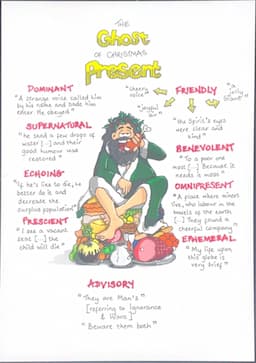 THE
Ghost
OF CHRISTMAS
Present
DOMINANT
"A strange voice called him
by his name and bade him
enter. He obeyed"
SUPERNATURAL
"he shed a few drops of
water [...] and their
good humour was
restored"
ECHOING
"If he's like to die, he
better do it and
decrease the
surplus population"
PRESCIENT
"I see a vacant
seat [...] the
child will die"
"cheery
voice"
FRIENDLY
"a
jolly
Giant"
"joyful
air"
"the Spirit's eyes
were clear and
kind"
BENEVOLENT
"To a poor one
most [...] Because it
needs it most"
OMNIPRESENT
"A place where miners
live, who labour in the
bowels of the earth
[...] They found a
cheerful company"
EPHEMERAL
"My life upon
this globe is
very brief"
ADVISORY
"They are Man's"
[referring to Ignorance
& Want]
"Beware them both"